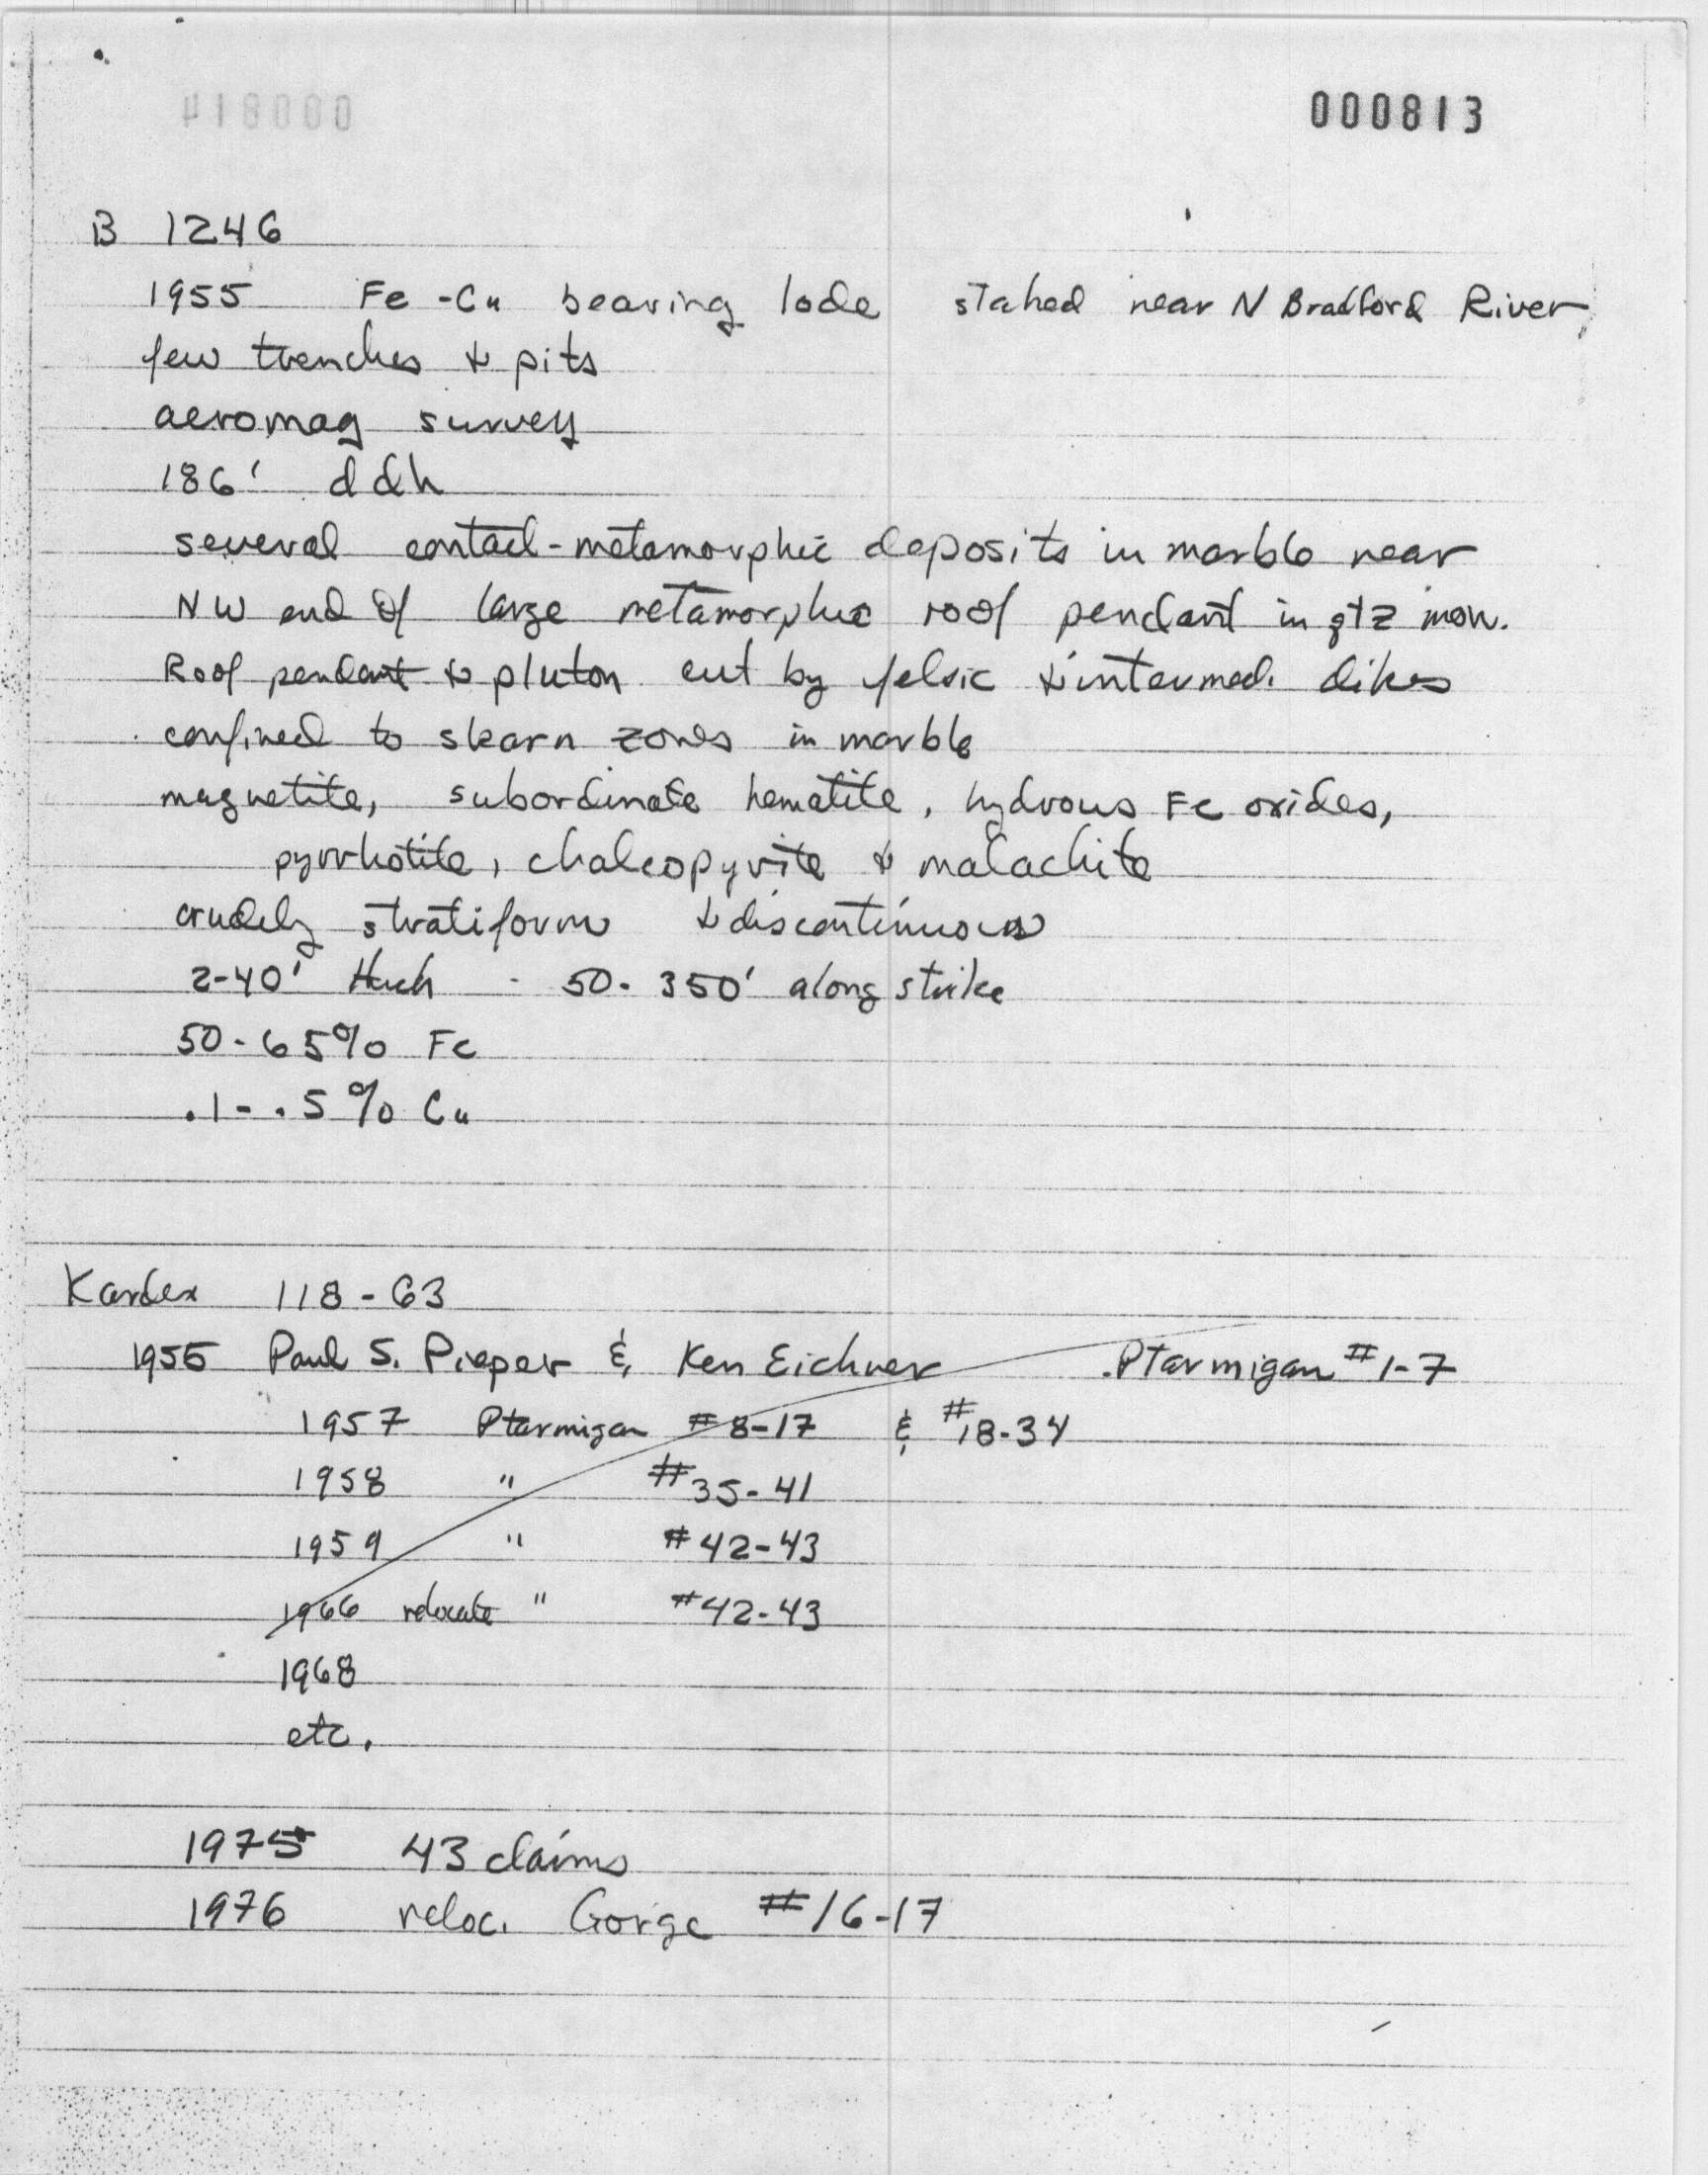 000813
B 1246
1955 Fe-Cu bearing lode staked near N Bradford River,
few trenches & pits
aeromag survey
186' ddh
several contact-metamorphic deposits in marble near
NW end of large metamorphic roof pendant in qtz mon.
Roof pendant & pluton cut by felsic & intermed. dikes
confined to skarn zones in marble
magnetite, subordinate hematite, hydrous Fe oxides,
pyrrhotite, chalcopyrite & malachite
crudely stratiform & discontinuous
2-40' thick - 50-350' along strike
50-65% Fe
.1-.5% Cu
Kardex 118-63
1955 Paul S. Pieper & Ken Eichner Ptarmigan #1-7
1957 Ptarmigan #8-17 & #18-34
1958 " #35-41
1959 " #42-43
1966 relocate " #42-43
1968
etc.
1975 43 claims
1976 reloc. Gorge #16-17